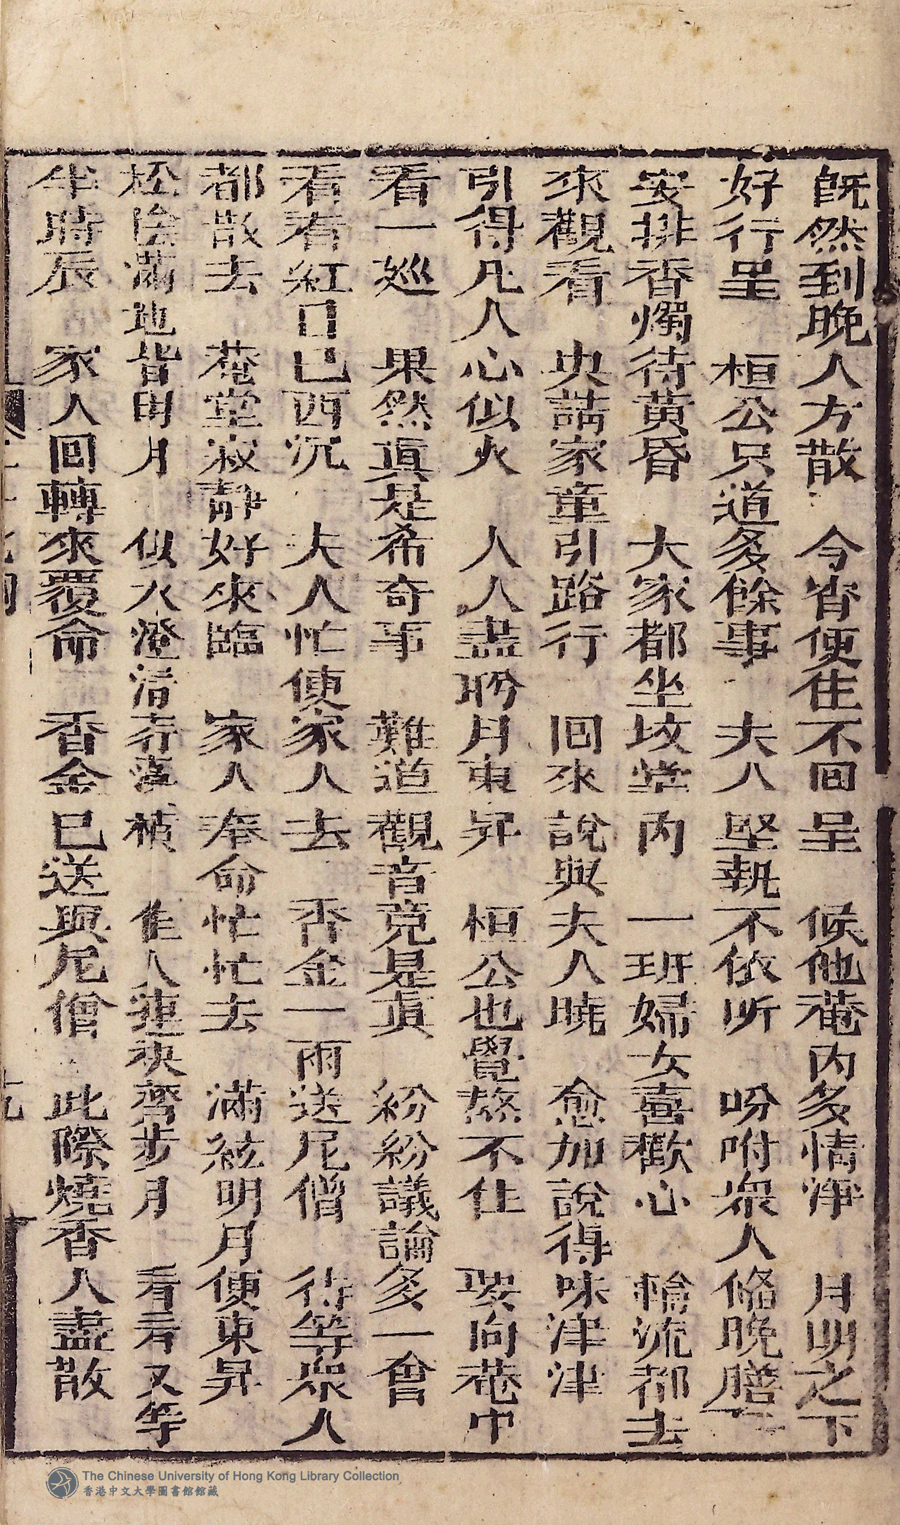 既然到晚人方散　今宵便住不回呈　候他菴內多情淨　月明之下
好行呈　桓公只道多餘事　夫人堅執不依所　吩咐衆人俻晚膳
安排香燭待黃昏　大家都坐坟堂內　一班婦女喜歡心　輪流都去
來觀看　央請家童引路行　回來說與夫人曉　愈加說得味津津
引得凡人心似火　人人盡盼月東昇　桓公也覺熬不住　要向菴中
看一廵　果然真是希奇事　難道觀音竟是真　紛紛議論多一會
看看紅日已西沉　夫人忙使家人去　香金一両送尼僧　待等衆人
都散去　菴堂寂静好來臨　家人奉命忙忙去　滿絃明月便東昇
松陰滿地皆明月　似水澄清荇藻橫　隹人連袂齊步月　看看又等
半時辰　家人回轉來覆命　香金已送與尼僧　此際燒香人盡散
The Chinese University of Hong Kong Library Collection
香港中文大學圖書館館藏